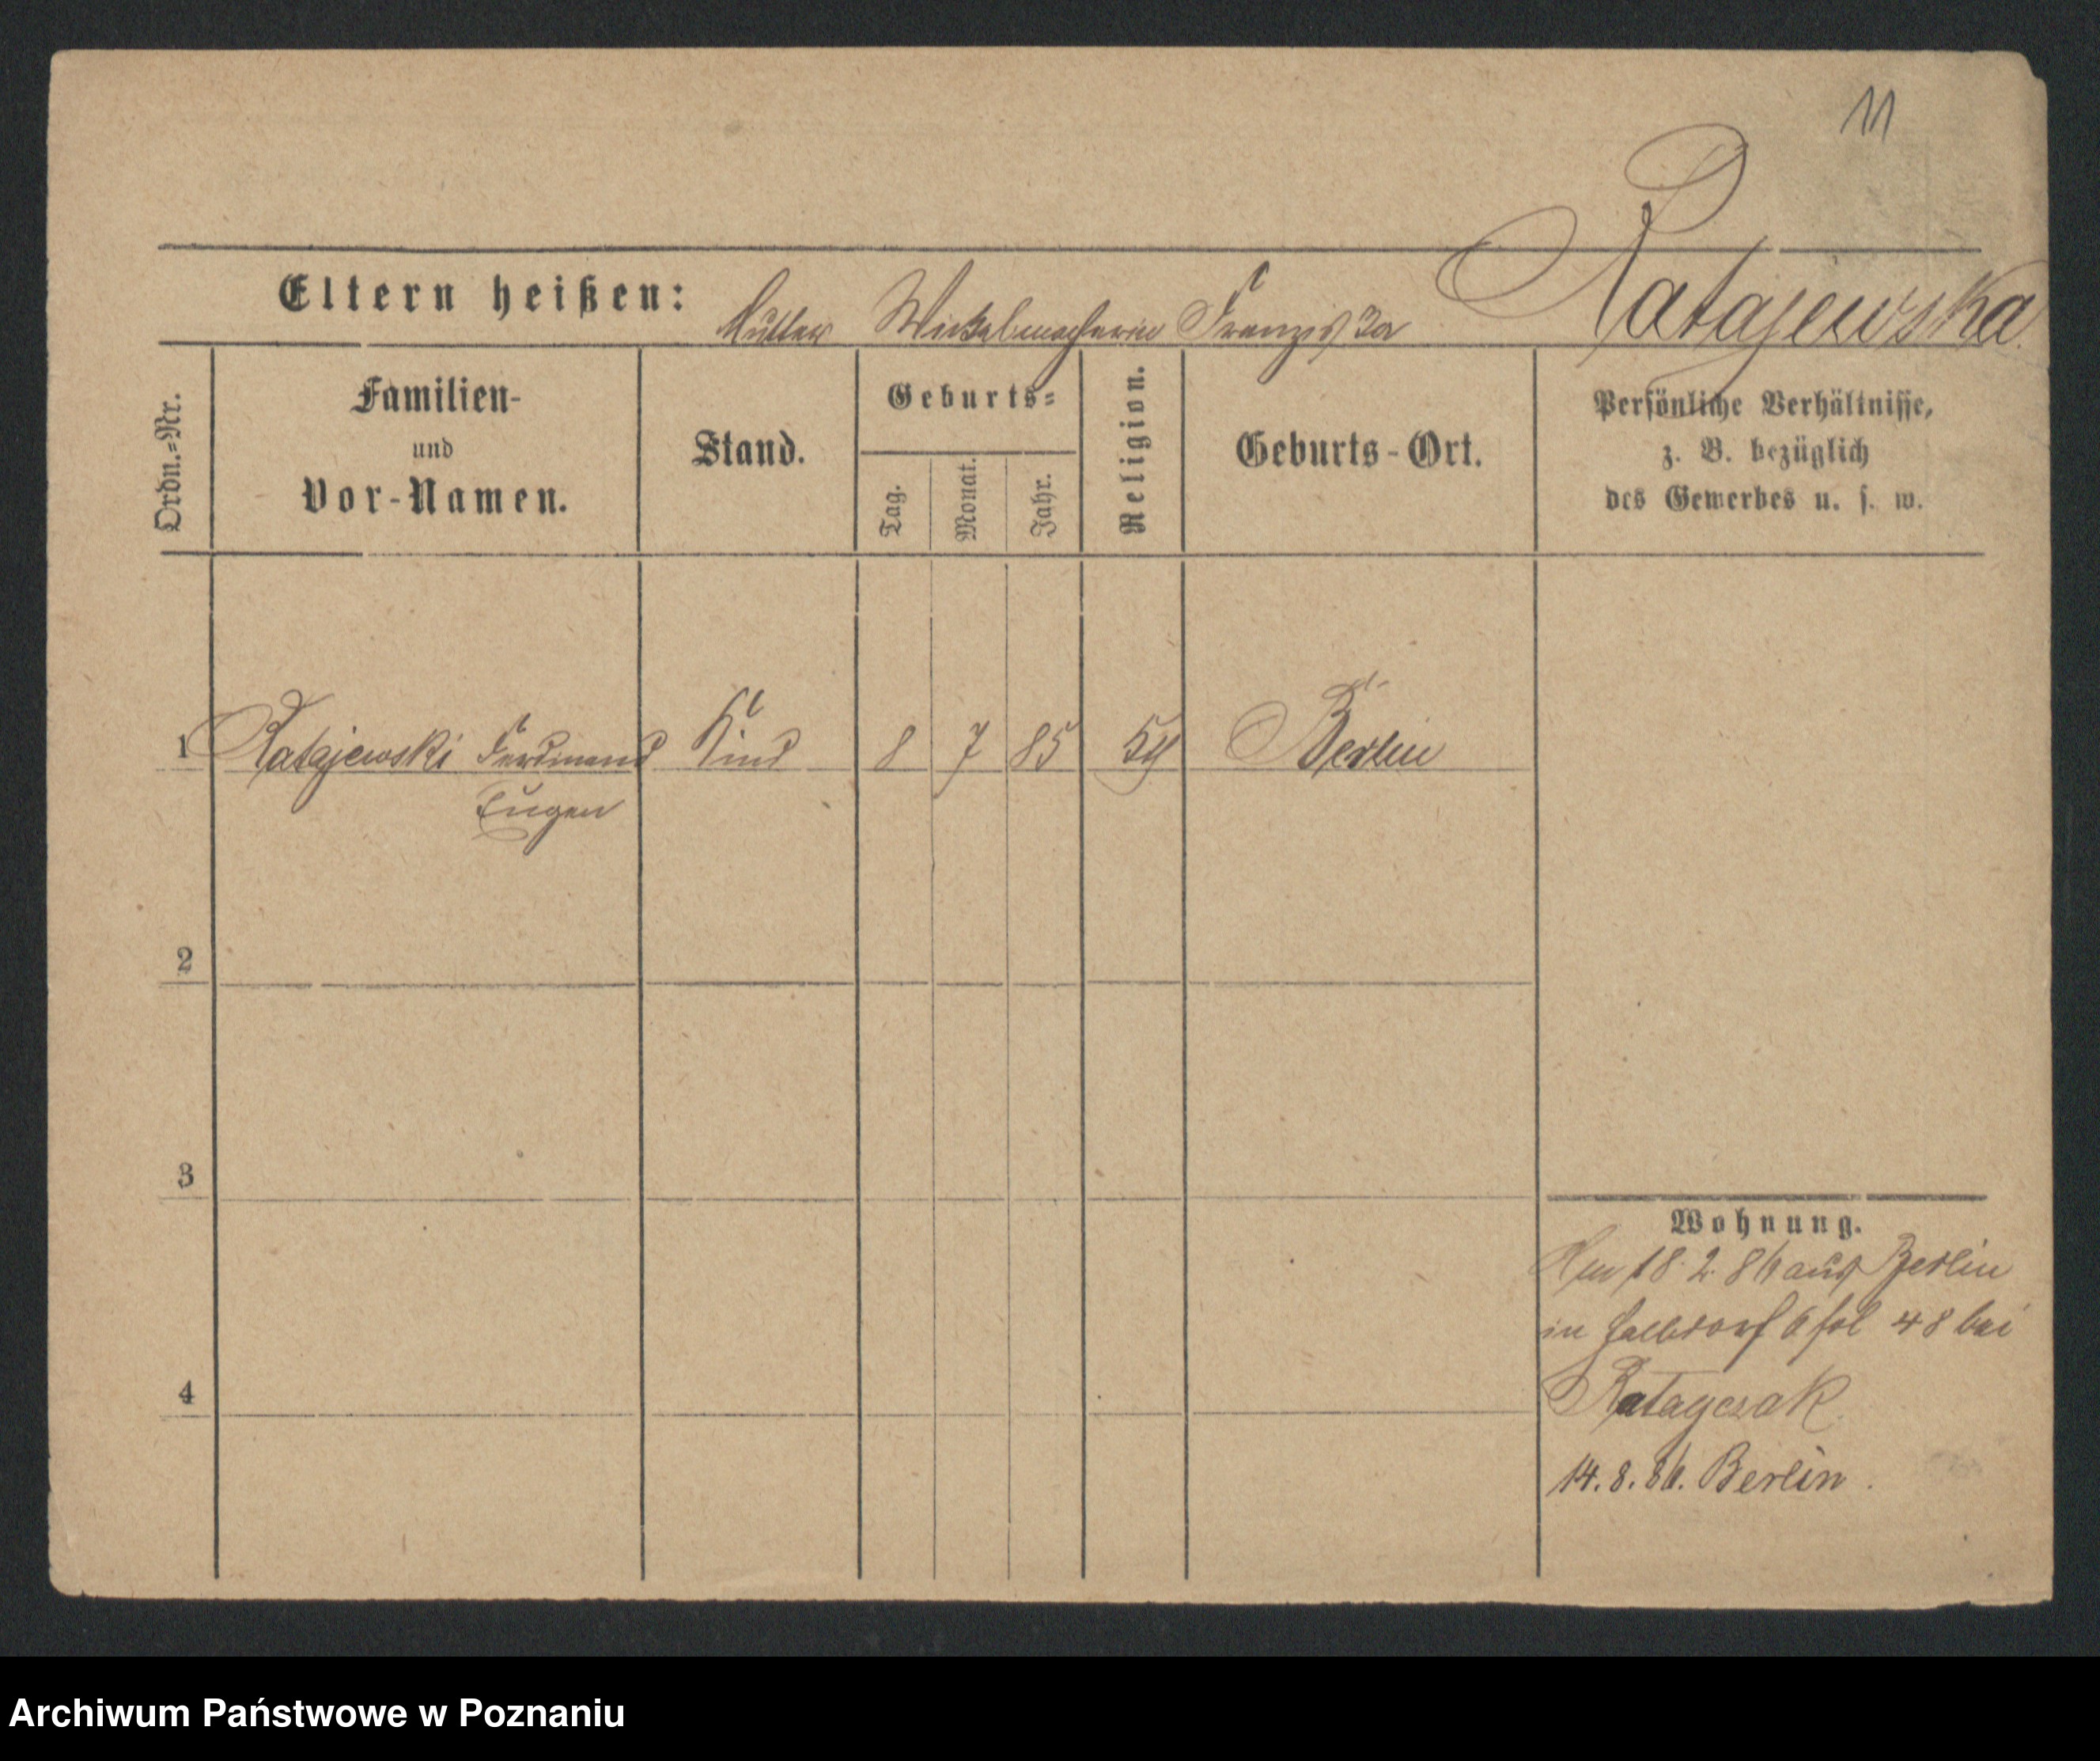 11
Eltern heißen: Mutter Wickelmacherin Franziska Ratajewska
Ordn.=Nr.
Familien-
und
Vor-Namen.
Stand.
Geburts=
Tag.
Monat.
Jahr.
Religion.
Geburts-Ort.
Persönliche Verhältnisse,
z. B. bezüglich
des Gewerbes u. s. w.
1 Ratajewski Ferdinand Kind 8 7 85 Berlin
Eugen
2
3
4
Wohnung.
Am 18. 2. 86 aus Berlin
in 6 fol 48 bei
Ratayczak
14. 8. 86. Berlin.
Archiwum Państwowe w Poznaniu